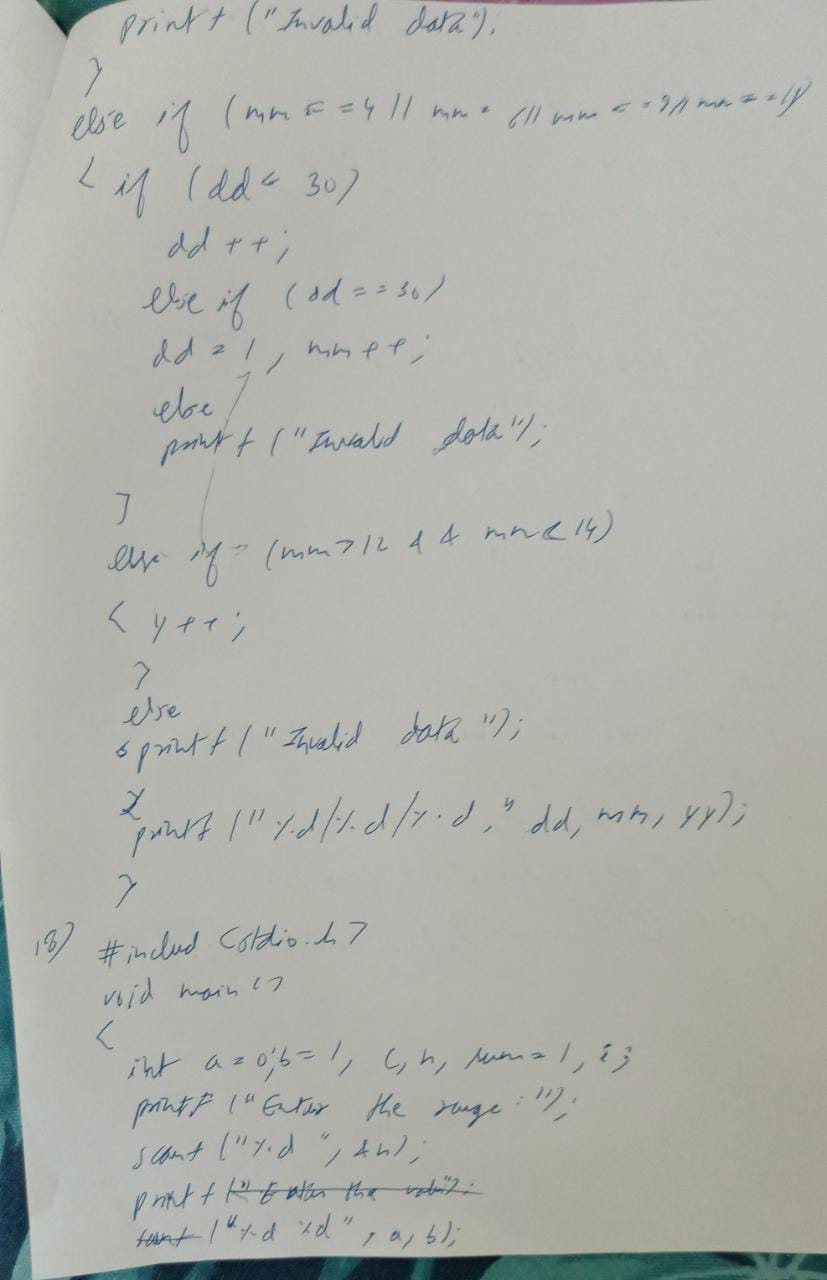 printf ("Invalid data");
}
else if (mm = = 4 || mm = 6 || mm = = 9 || mm = = 11)
{ if (dd < 30)
dd ++;
else if (dd == 30)
dd = 1, mm ++;
else
printf ("Invalid data");
}
else if (mm > 12 && mm < 14)
{ y ++;
}
else
printf ("Invalid data");
}
printf ("%d/%d/%d," dd, mm, yy);
}
18) #includ <stdio.h>
void main ()
{
int a = 0, b = 1, c, n, sum = 1, i;
printf ("Enter the range :");
scanf ("%d ", &n);
printf
("%d %d", a, b);